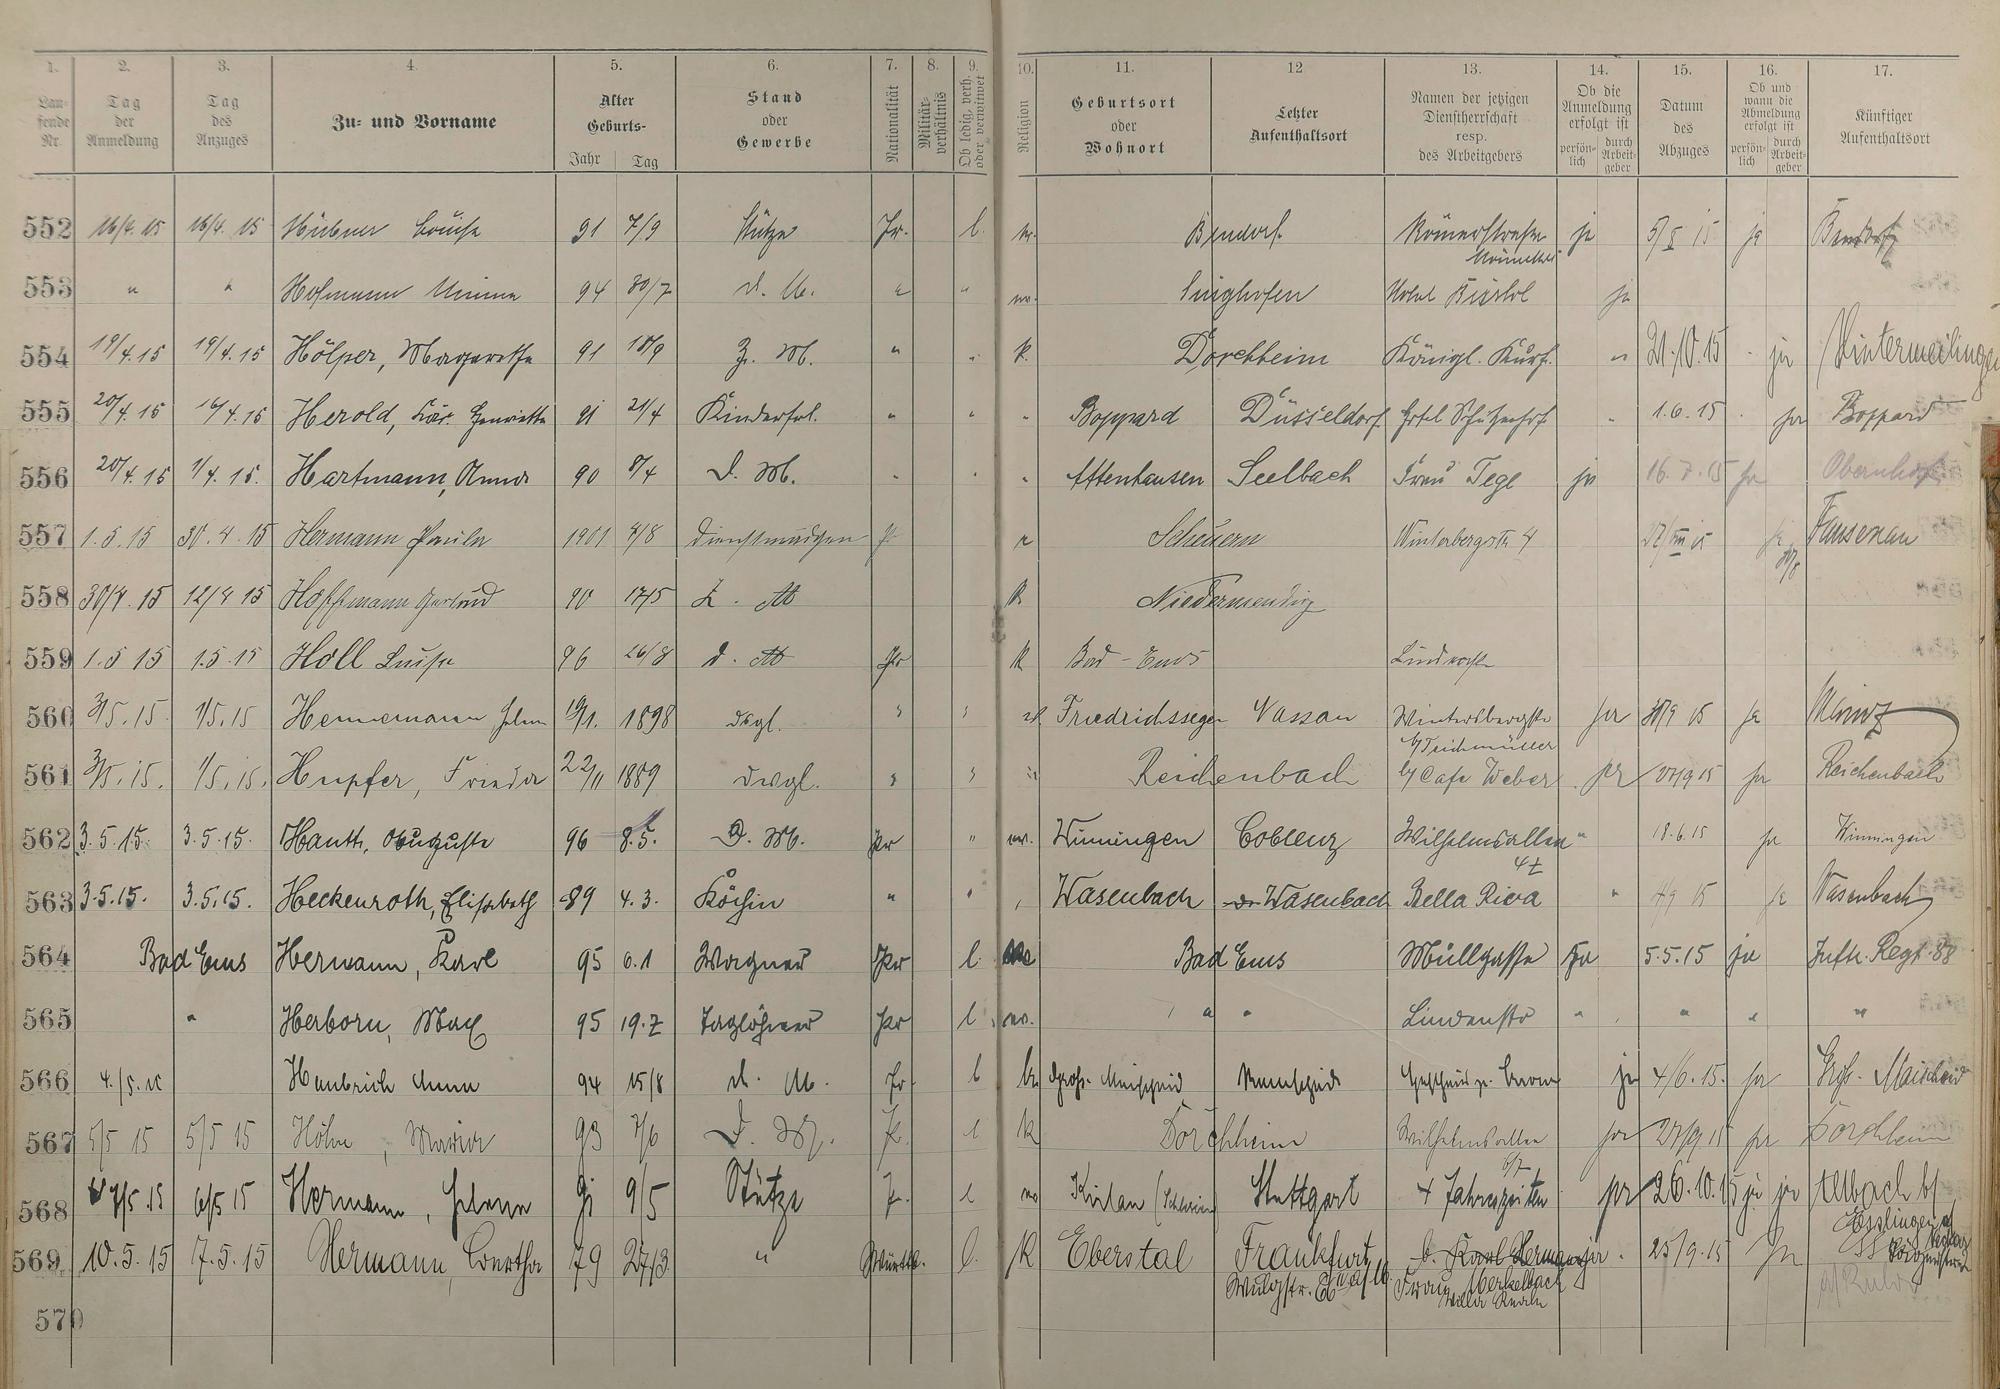 1. 2. 3. 4. 5. 6. 7. 8. 9. 10. 11. 12 13. 14. 15. 16. 17.
Lau-fende Nr. Tag der Anmeldung Tag des Anzuges Zu- und Vorname Alter Geburts- Jahr Tag Stand oder Gewerbe Nationalität Militär-verhältnis Ob ledig, verh. oder verwitwet Religion Geburtsort oder Wohnort Letzter Aufenthaltsort Namen der jetzigen Dienstherrschaft resp. des Arbeitgebers Ob die Anmeldung erfolgt ist persön-lich durch Arbeit-geber Datum des Abzuges Ob und wann die Abmeldung erfolgt ist persön-lich durch Arbeit-geber Künftiger Aufenthaltsort
552 16/4. 15 16/4. 15 Hübner Louise 91 7/9 Stütze Pr. l. Bendorf Römerstrasse ja 5/X 15 ja Bendorf
553 " " Hofmann Minna 94 30/7 d. M. " " Singhofen Hotel Bristol ja
554 19/4.15 19/4.15 Hölper, Margarethe 91 18/9 Z. M. " " k. Dorchheim Königl. Kurh. " 21.10.15 ja Hintermeilingen
555 20/4.15 16/4.15 Herold, Henriette 91 21/4 Kinderfrl. " " " Boppard Düsseldorf Hotel Schützenhof " 1.6.15 ja Boppard
556 20/4.15 1/4.15. Hartmann, Anna 90 8/4 D. M. " " " Attenhausen Seelbach Frau Tege ja 16.7.15 ja Obernhof
557 1.5.15 30.4.15 Hermann Paula 1901 4/8 Dienstmädchen Scheuern Winterbergstr 4 27/VIII 15 ja Fausenau
558 30/4.15 12/4 15 Hoffmann Gertrud 90 17/5 Z. M k. Niedermendig
559 1.5 15 1.5.15 Holl Luise 96 26/8 d. M Pr k Bad-Ems
560 3/5.15. 1/5.15 Hennemann 19/1. 1898 dsgl. " " Friedrichssegen Nassau Wintersbergstr b/Teichmüller ja 30/9 15 ja Mainz
561 3/5.15. 1/5.15. Hupfer, Frieda 22/11 1889 dsgl. " " " Reichenbach b/ Cafe Weber ja 27/9 15 ja Reichenbach
562 3.5.15. 3.5.15. Hauth, Auguste 96 8.5. D. M. Pr " Winningen Coblenz Wilhelmsallee " 18.6.15 ja Winningen
563 3.5.15. 3.5.15. Heckenroth, Elisabeth 89 4.3. Köchin " " Wasenbach Wasenbach Bella Riva " 4/9 15 ja Wasenbach
564 Bad Ems Hermann, Karl 95 6.1 Wagner Pr l. Bad Ems Müllgasse ja 5.5.15 ja Inftr. Regt. 88
565 " Herborn, Max 95 19.7 Taglöhner Pr l " " Lindenstr " " " "
566 4./5. 15 Haubrich Anna 94 15/8 d. M. Pr. l ja 4/6.15. ja Maischeid
567 5/5 15 5/5 15 Höhn, Maria 93 7/6 D. M. P. l k Dorchheim Wilhelmsallee ja 27/9 15 ja Dorchheim
568 7/5.15 6/5 15 Hermann, 91 9/5 Stütze P. l Stuttgart 4 Jahreszeiten ja 26.10.15 ja ja Altbach b/ Esslingen
569 10.5.15 7.5.15 Hermann, Bertha 79 27/3 " Württb. l. k Eberstal Frankfurt b. Karl Hermann Frau Merkelbach ja 25/9.15 ja
570